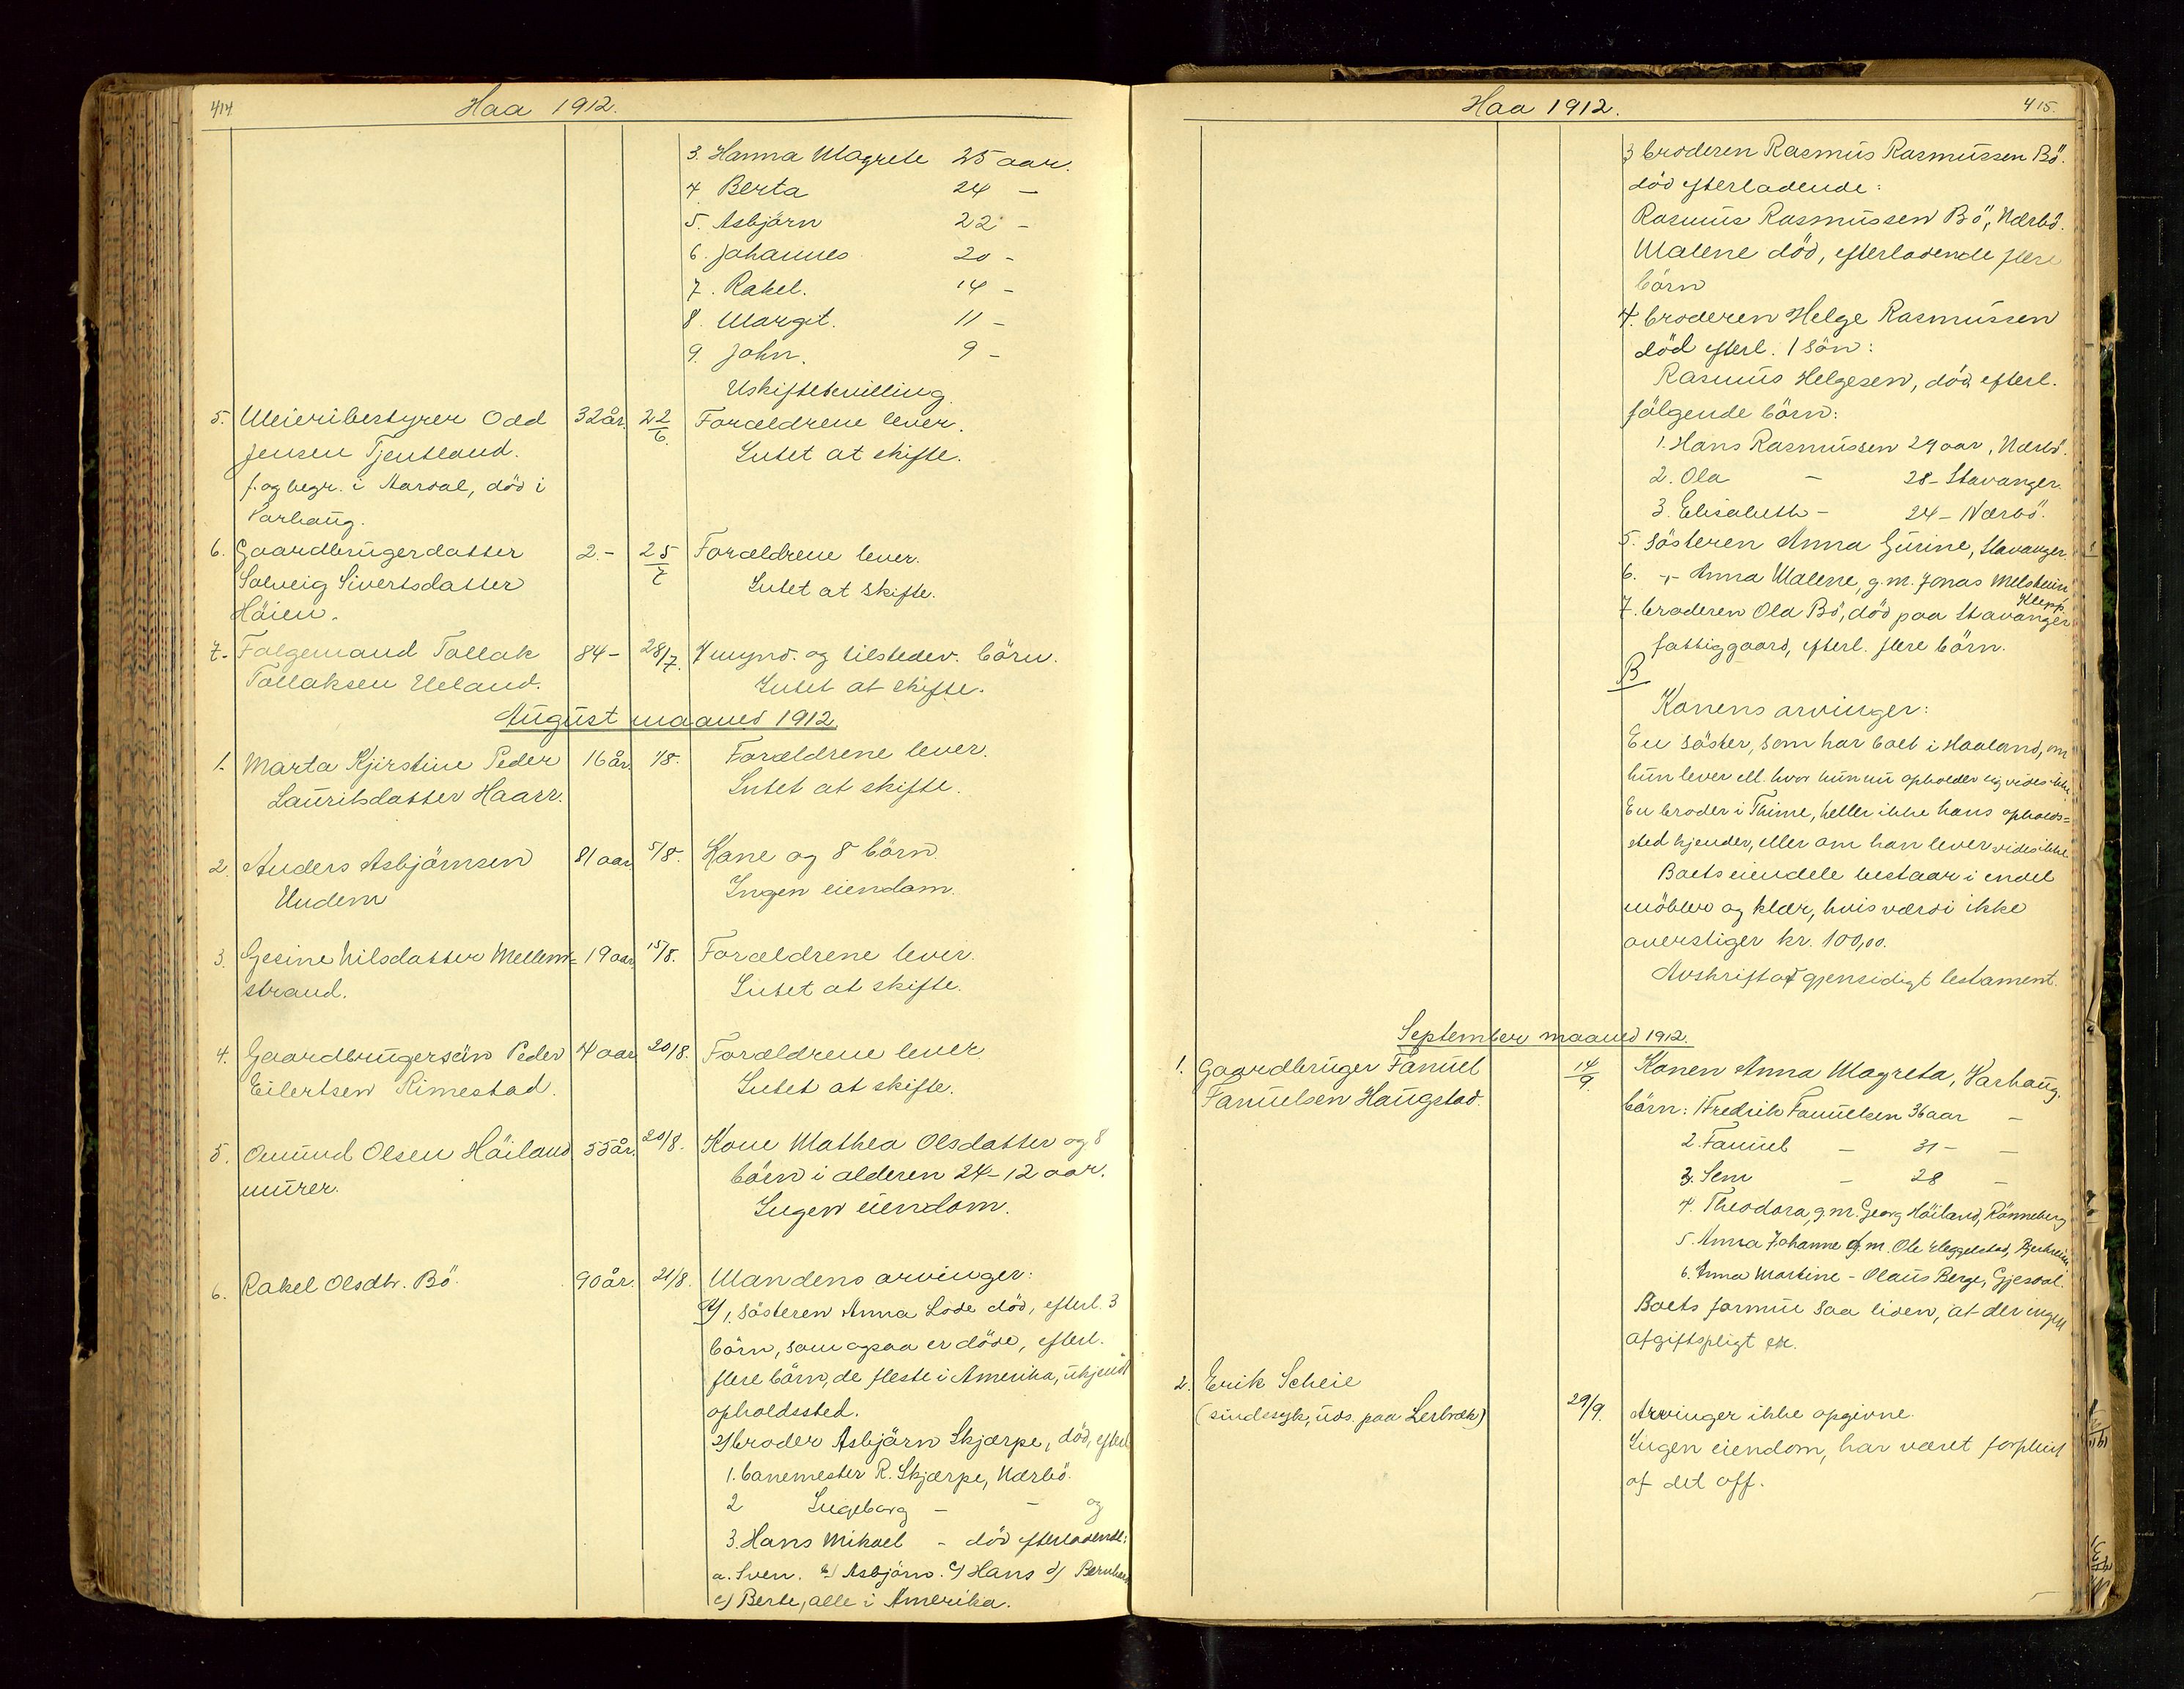 414 Haa 1912.
3. Hanna Magrete 25 aar.
4. Berta 24 –
5. Asbjörn 22 –
6. Johannes 20 –
7. Rakel. 14 –
8. Margit. 11 –
9. John. 9 –
Uskiftebevilling.
5. Meieribestyrer Odd 32 år. 22/6. Forældrene lever.
Jensen Tjentland. Intet at skifte.
f. og begr. i Aardal, död i
Varhaug.
6. Gaardbrugerdatter 2. – 25/7 Forældrene lever.
Solveig Sivertsdatter Intet at skifte.
Höien.
7. Folgemand Tollak 84 – 28/7. 7 mynd. og tilstedev. börn.
Tollaksen Ueland. Intet at skifte.
August maaned 1912.
1. Marta Kjirstine Peder 16 år. 1/8. Forældrene lever.
Lauritsdatter Haarr. Intet at skifte.
2. Anders Asbjörnsen 81 aar 5/8. Kone og 8 börn.
Undem Ingen eiendom.
3. Gesine Nilsdatter Mellem= 19 aar 15/8. Forældrene lever.
strand. Intet at skifte.
4. Gaardbrugersön Peder 4 aar 20/8. Forældrene lever.
Eilertsen Rimestad. Intet at skifte.
5. Omund Olsen Höiland 55 år. 20/8. Kone Mathea Olsdatter og 8
murer. börn i alderen 24–12 aar.
Ingen eiendom.
6. Rakel Olsdtr. Bö. 90 år. 21/8. Mandens arvinger:
A/ 1. sösteren Anna Lode död, efterl. 3
börn, som ogsaa er döde, efterl.
flere börn, de fleste i Amerika, ukjendt
opholdssted.
2/ broder Asbjörn Skjærpe, död, efterl
1. banemester R. Skjærpe, Nærbö.
2 Ingeborg – – og
3. Hans Mikael – död efterladende:
a. Sven. b/ Asbjörn. c/ Hans d/ Bernhard
e/ Berte, alle i Amerika.
Haa 1912. 415.
3 broderen Rasmus Rasmussen Bö.
död efterladende:
Rasmus Rasmussen Bö, Nærbö.
Malene död, efterladende flere
börn
4. broderen Helge Rasmussen
död efterl. 1 sön:
Rasmus Helgesen, död efterl.
fölgende börn:
1. Hans Rasmussen 29 aar, Nærbö.
2. Ola – 28 – Stavanger.
3. Elisabeth – 24 – Nærbö.
5. Sösteren Anna Gurine, Stavanger.
6. –"– Anna Malene, g.m. Jonas Melsheim
Klepp.
7. broderen Ola Bö, död paa Stavanger
fattiggaard, efterl. flere börn.
B
Konens arvinger:
En söster, som har boet i Haaland, om
hun lever ell. hvor hun nu opholder sig vides ikke.
En broder i Thime, heller ikke hans opholds=
sted kjendes, eller om han lever vides ikke
Boets eiendele bestaar i endel
möbler og klær, hvis værdi ikke
overstiger kr. 100,00.
Avskrift af gjensidigt testament.
September maaned 1912.
1. Gaardbruger Fanuel 14/9. Konen Anna Magreta, Varhaug.
Fanuelsen Haugstad. börn: 1 Fredrik Fanuelsen 36 aar –
2. Fanuel – 31 – –
3. Sem – 28 –
4. Theodora, g.m. Georg Höiland, Rönneberg
5. Anna Johanne g.m. Ole Eleggelstad, Bjerkreim
6. Anna Martine – Olaus Berge, Gjesdal.
Boets formue saa liden, at der ingen
afgiftspligt er.
2. Erik Scheie 29/9. Arvinger ikke opgivne.
(sindssyk, uds. paa Lerbræk) Ingen eiendom, har været forpleiet
af det off.